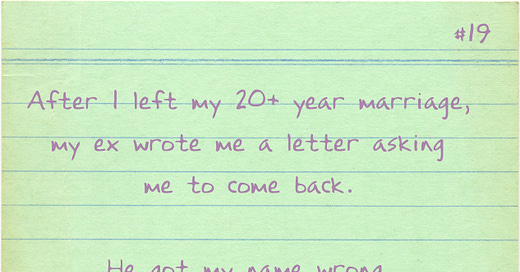 #19
After I left my 20+ year marriage,
my ex wrote me a letter asking
me to come back.
He got my name wrong